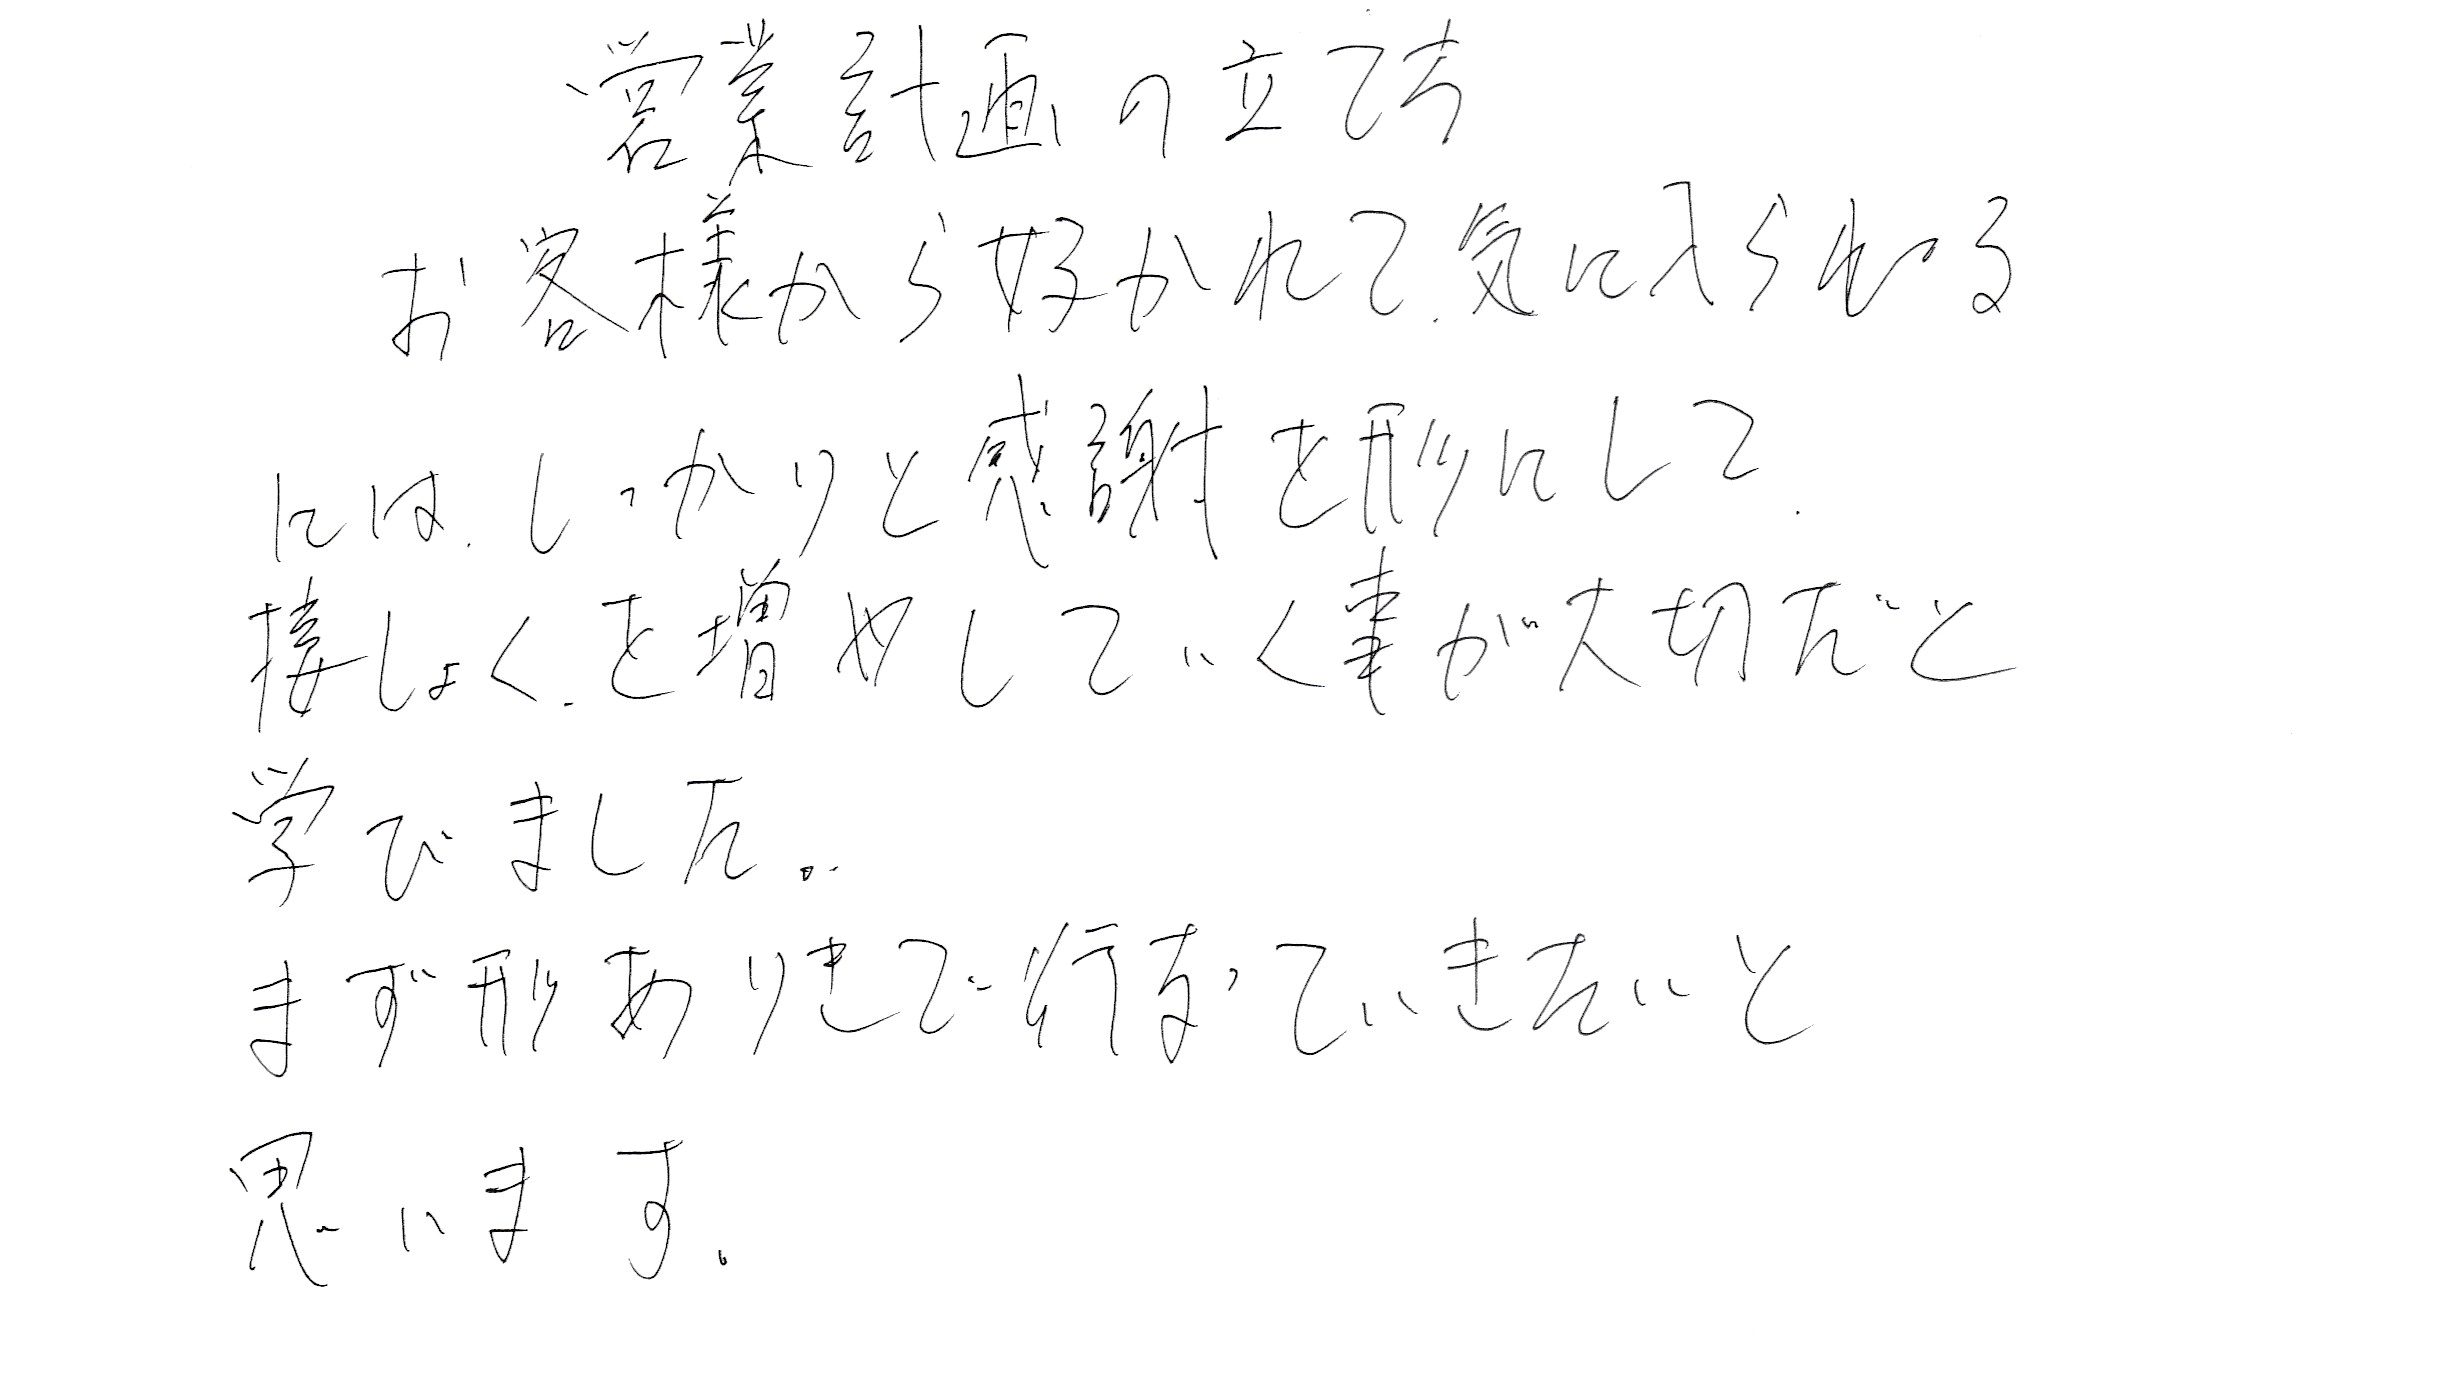 営業計画の立て方
お客様から好かれて、気に入られる
には、しっかりと感謝を形にして、
接しょく、を増やしていく事が大切だと
学びました。
まず形ありきで行なっていきたいと
思います。